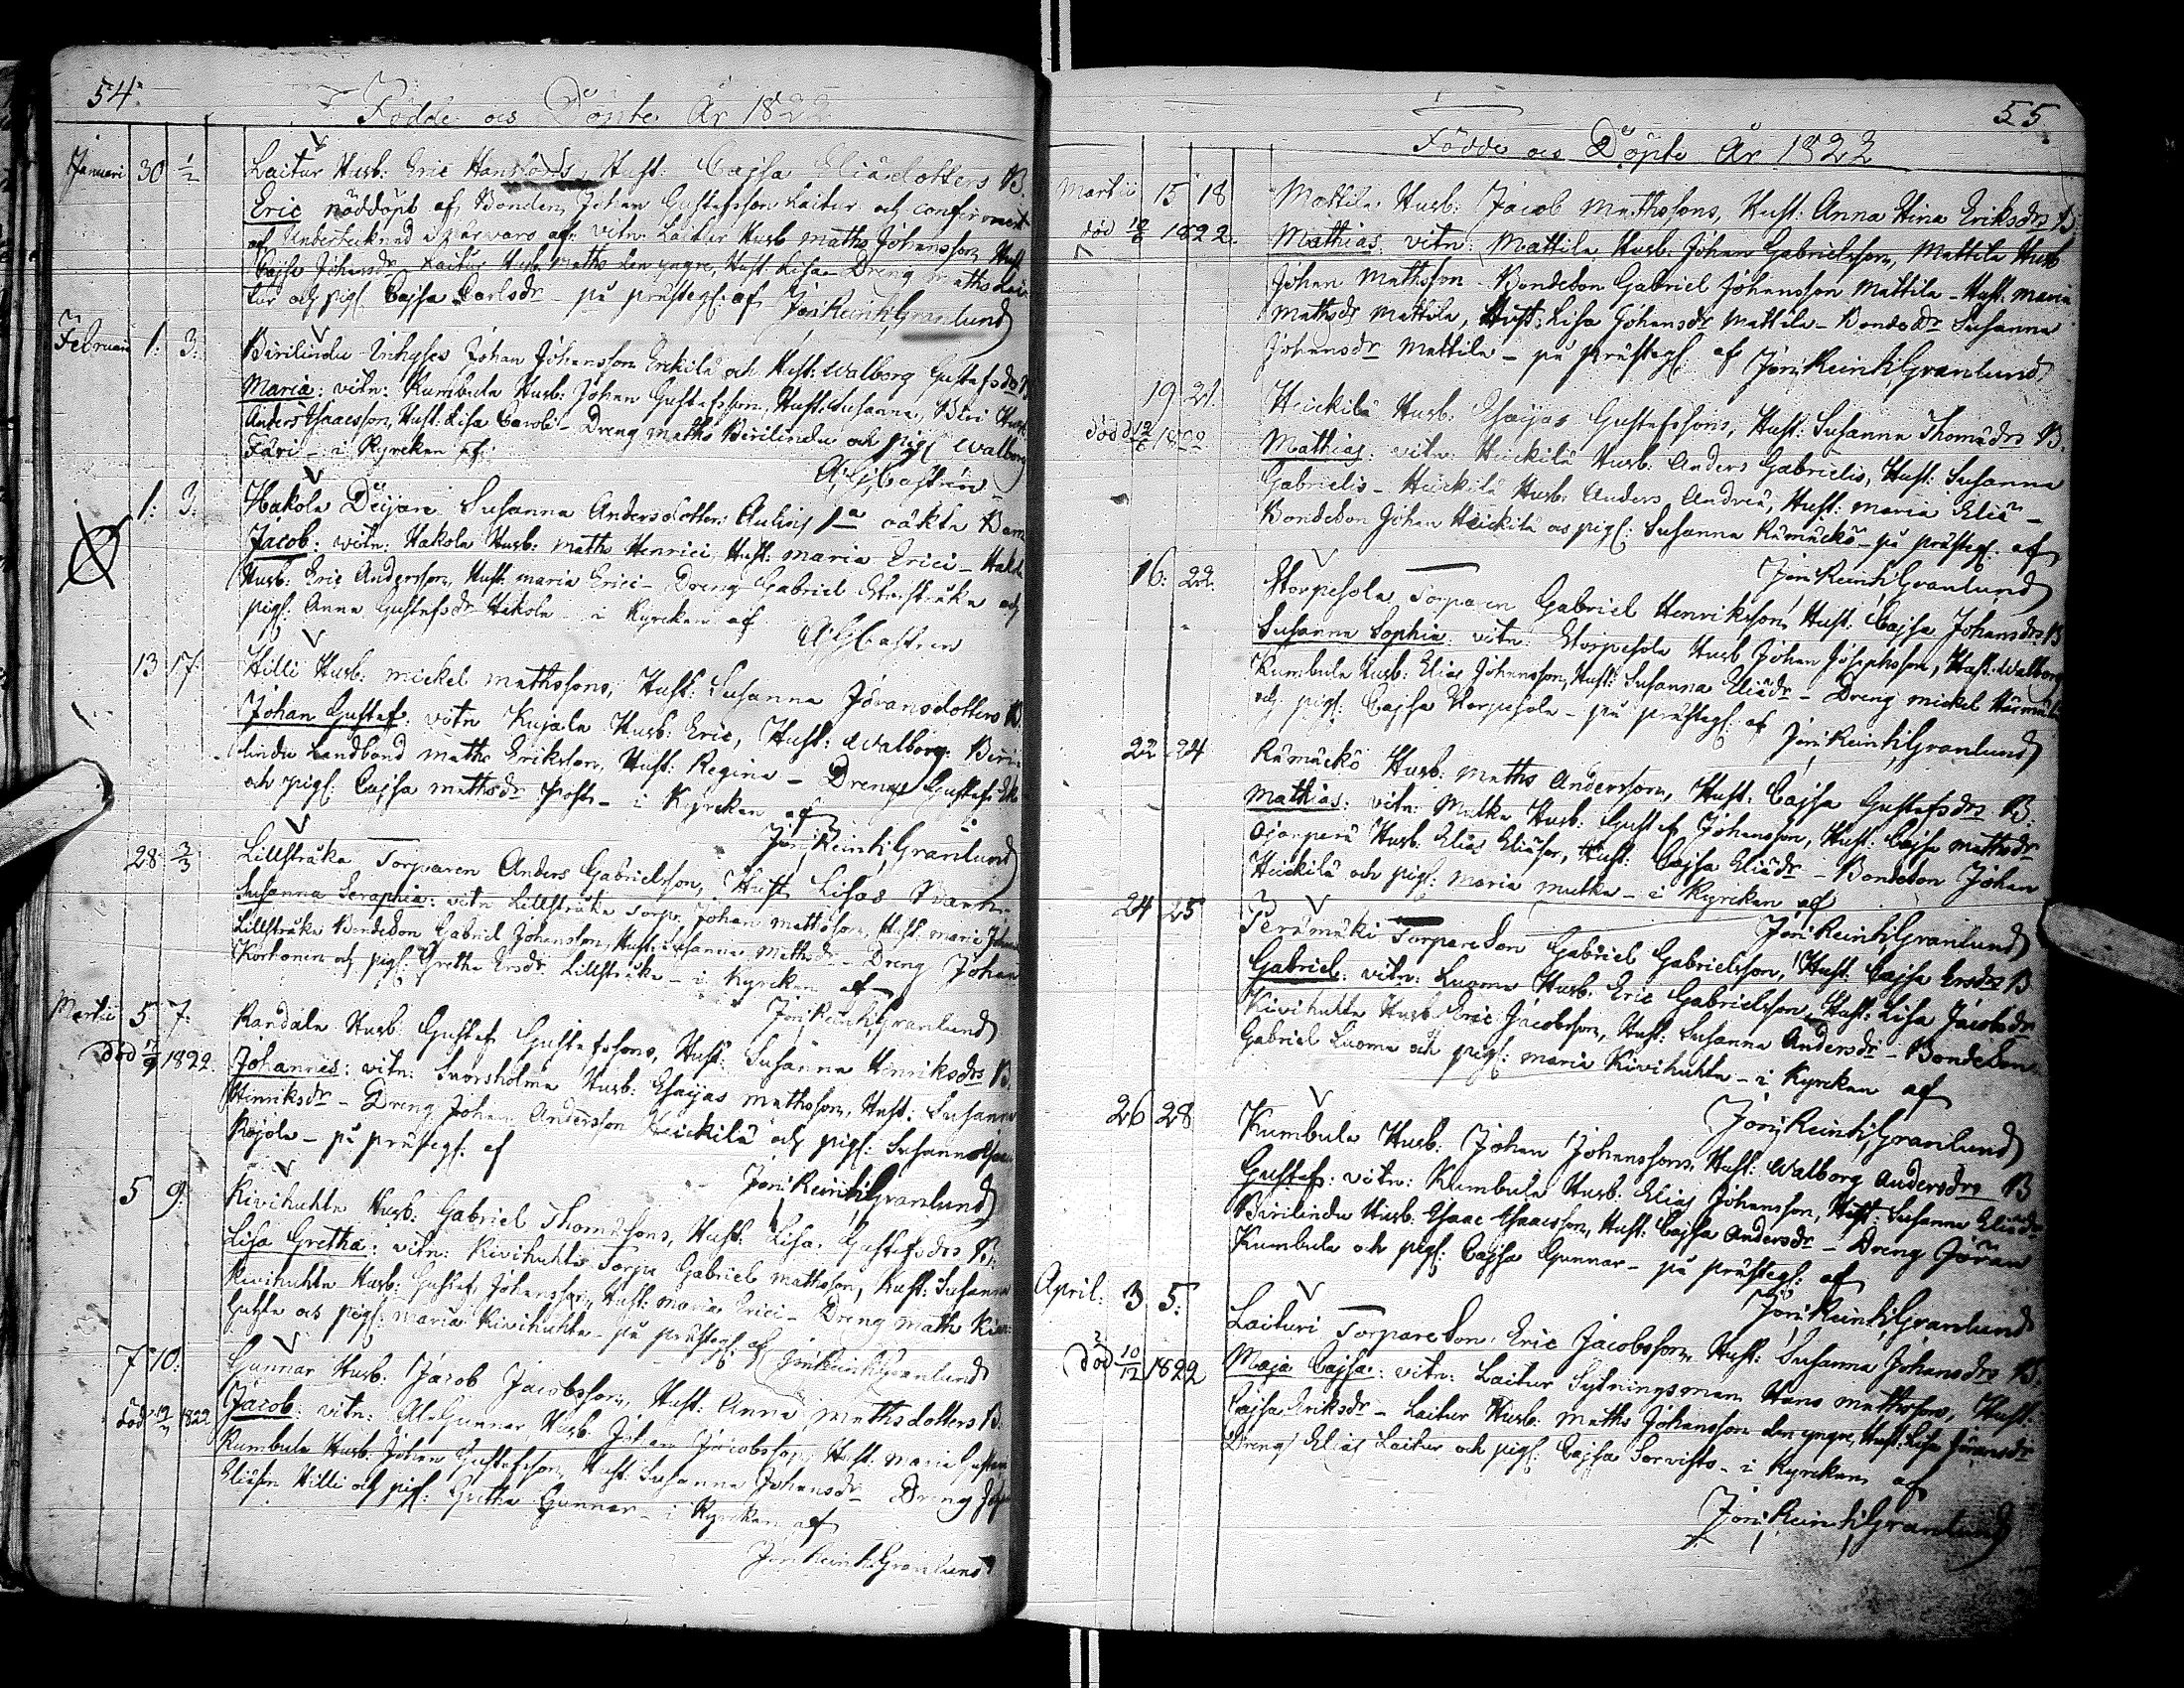 54.
Födde och Döpte År 1822
Januari 30 1/2 Laitur Husb: Eric Hanssons, Hust: Cajsa Eliædotters B.
Eric nöddöpt af Bonden Johan Gustafsson Laitur och confirmerat
af Undertecknad vitn: Laitur Husb Maths Johansson, Hust
Cajsa Johansdr Laitur Husb. Maths den yngre, Hust. Lisa Dreng Maths Lai-
tur och pig: Cajsa Carlsdr – på prästeg: af Jöri Reinh: Granlund
Februari 1. 3. Birilindu Inhyses Johan Johansson Erckilä och Hust: Walborg Gustafsdrs B
Maria: vitn: Kumbula Husb: Johan Gustafsson, Hust: Susanna, Biri Husb:
Anders Isaacsson, Hust: Lisa Caroli – Dreng Maths Birilindu och pig: Walborg
Färi – i Kyrckan af:
A: G: Castrén
1. 3. Hakola Deijan Susanna Andersdotter Aulins 1a oäkta Barn
Jacob: vitn: Hakola Husb: Math Henrici Hust: Maria Erici – Hakola
Husb: Eric Andersson, Hust. Maria Erici – Dreng Gabriel och
pig: Anna Gustafsdr Hakola – i Kyrckan af
A: G: Castren
13 17. Hilli Husb: Mickel Mathssons, Hust: Susanna Jöransdotters B.
Johan Gustaf: vitn Kujala Husb: Eric, Hust: Walborg: Biri-
lindu Landbond Maths Eriksson, Hust: Regina – Dreng Gustaf
och pig: Cajsa Mathsdr – i Kyrckan af
Jöri Reinh: Granlund
28 3/3 Lillstråka Torparen Anders Gabrielsson, Hust Lisas Barn
Susanna Seraphia: vitn Lillstråka Torp. Johan Mathsson, Hust: Maria
Lillstråka BondeSon Gabriel Johansson, Hust: Susanna Mathsdr – Dreng Johan
Korhonen och pig: Gretha Ersdr Lillstråka – i Kyrckan af
Jöri Reinh: Granlund
Martii 5 7. Randala Husb: Gustaf Gustafssons, Hust: Susanna Hinriksdrs B.
död 1822. Johannes: vitn: Snorsholma Husb: Esaijas Mathsson, Hust: Susanna
Hinriksdr – Dreng Johan Andersson Heickilä och pig: Susanna
Kojola – på prästeg: af
Jöri Reinh: Granlund
5 9. Kivihuhta Husb: Gabriel Thomæsons, Hust: Lisa Gustafsdrs B:
Lisa Gretha: vitn: Kivihuhta Torp: Gabriel Mathsson, Hust: Susanna
Kivihuhta Husb: Gustaf Johansson, Hust: Maria Erici – Dreng Math Kivi-
huhta och pig: Maria Kivihuhta – på prästeg: af Jöri Reinh: Granlund
7 10. Gunnar Husb: Jacob Jacobsson, Hust: Anna Mathsdotters B.
död 1822 Jacob: vitn: AlaGunnar Husb: Johan Jacobsson, Hust: Maria
Kumbula Husb: Johan Gustafsson, Hust: Susanna Johansdr Dreng
Eliæson Hilli och pig: Gretha Gunnar – i Kyrckan af
Jöri Reinh: Granlund
55
Födde och Döpte År 1822
Martii 15 18 Mattila Husb: Jacob Mathssons, Hust: Anna Stina Eriksdrs B.
död 1822. Mathias: vitn: Mattila Husb: Johan Gabrielsson, Mattila Husb
Johan Mathsson – BondeSon Gabriel Johansson Mattila – Hust: Maria
Mathsdr Mattila, Hust: Lisa Johansdr Mattila – BondeDr Susanna
Johansdr Mattila – på prästeg: af Jöri Reinh: Granlund
19 21. Heickilä Husb: Esaijas Gustafssons, Hust: Susanna Thomædrs B.
död 1822 Mathias: vitn: Heickilä Husb: Anders Gabrielis, Hust: Susanna
Gabrielis – Heickilä Husb: Anders Andreæ, Hust: Maria Eliæ –
BondeSon Johan Heickilä och pig: Susanna Rämäckö – på prästeg: af
Jöri Reinh: Granlund
16. 22. Storpesola Torparen Gabriel Henriksson, Hust: Cajsa Johansdrs B
Susanna Sophia: vitn: Storpesola Husb Johan Josephsson, Hust: Walborg
Kumbula Husb: Elias Johansson, Hust: Susanna Eliædr – Dreng Mickel
och pig: Cajsa Storpesola – på prästeg: af Jöri Reinh: Granlund
22 24 Rämäckö Husb: Maths Andersson, Hust: Cajsa Gustafsdrs B:
Mathias: vitn: Mulka Husb: Gustaf Johansson, Hust: Cajsa Mathsdr
Ojanperä Husb: Elias Eliæson, Hust: Cajsa Eliædr – BondeSon Johan
Heickilä och pig: Maria Mulka – i Kyrckan af
Jöri Reinh: Granlund
24 25 Perämäki TorpareSon Gabriel Gabrielsson, Hust: Cajsa Ersdrs B
Gabriel: vitn: Luoma Husb: Eric Gabrielsson, Hust: Lisa Jacobsdr
Kivihuhta Husb Eric Jacobsson, Hust: Susanna Andersdr – BondeSon
Gabriel Luoma och pig: Maria Kivihuhta – i Kyrckan af
Jöri Reinh: Granlund
26 28 Kumbula Husb: Johan Johanssons, Hust: Walborg Andersdrs B
Gustaf: vitn: Kumbula Husb: Elias Johansson, Hust: Susanna Eliædr
Birilindu Husb: Isaac Isaacsson, Hust: Cajsa Andersdr – Dreng Jöran
Kumbula och pig: Cajsa Gunnar – på prästeg: af
Jöri Reinh: Granlund
April: 3 5. Laituri TorpareSon Eric Jacobsson, Hust: Susanna Johansdrs B.
död 10/12 1822 Maja Cajsa: vitn: Laitur Sytningsman Hans Mathsson, Hust:
Cajsa Eriksdr – Laitur Husb: Maths Johansson den yngre, Hust: Lisa Jöransdr
Dreng Elias Laitur och pig: Cajsa Sorvisto – i Kyrckan af
Jöri Reinh: Granlund